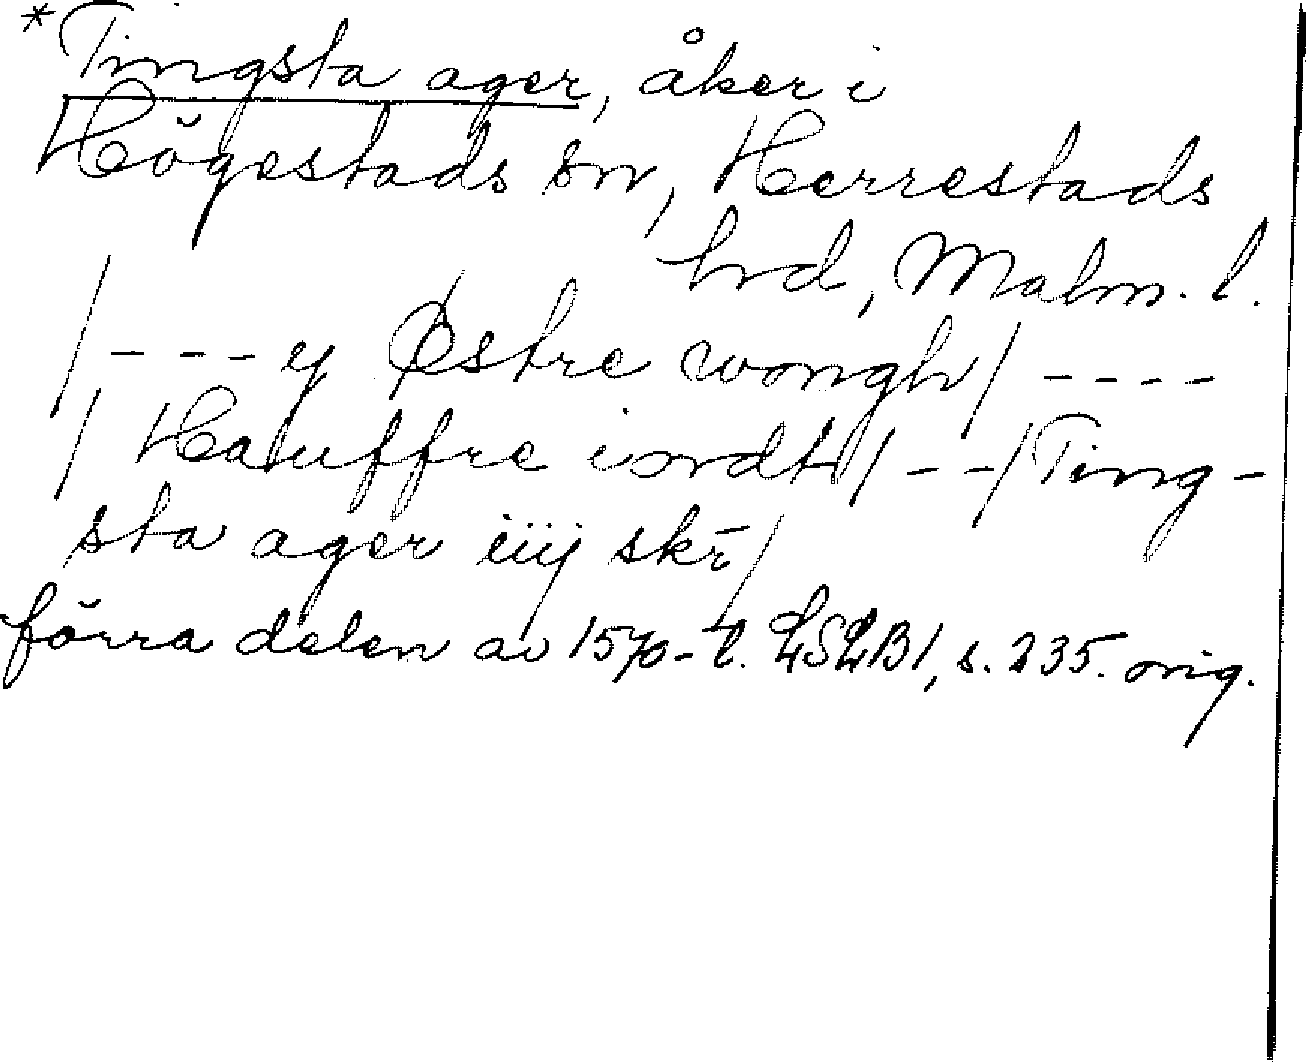 *Tingsta ager, åker i
Högestads sn, Herrestads
hrd, Malm. l.
/ - - - y Østre wongh / - - - -
/ Hauffre iordt / - - / Ting-
sta ager iiij skr̄ /
förra delen av 1570-t. LSLB1, s. 235. orig.